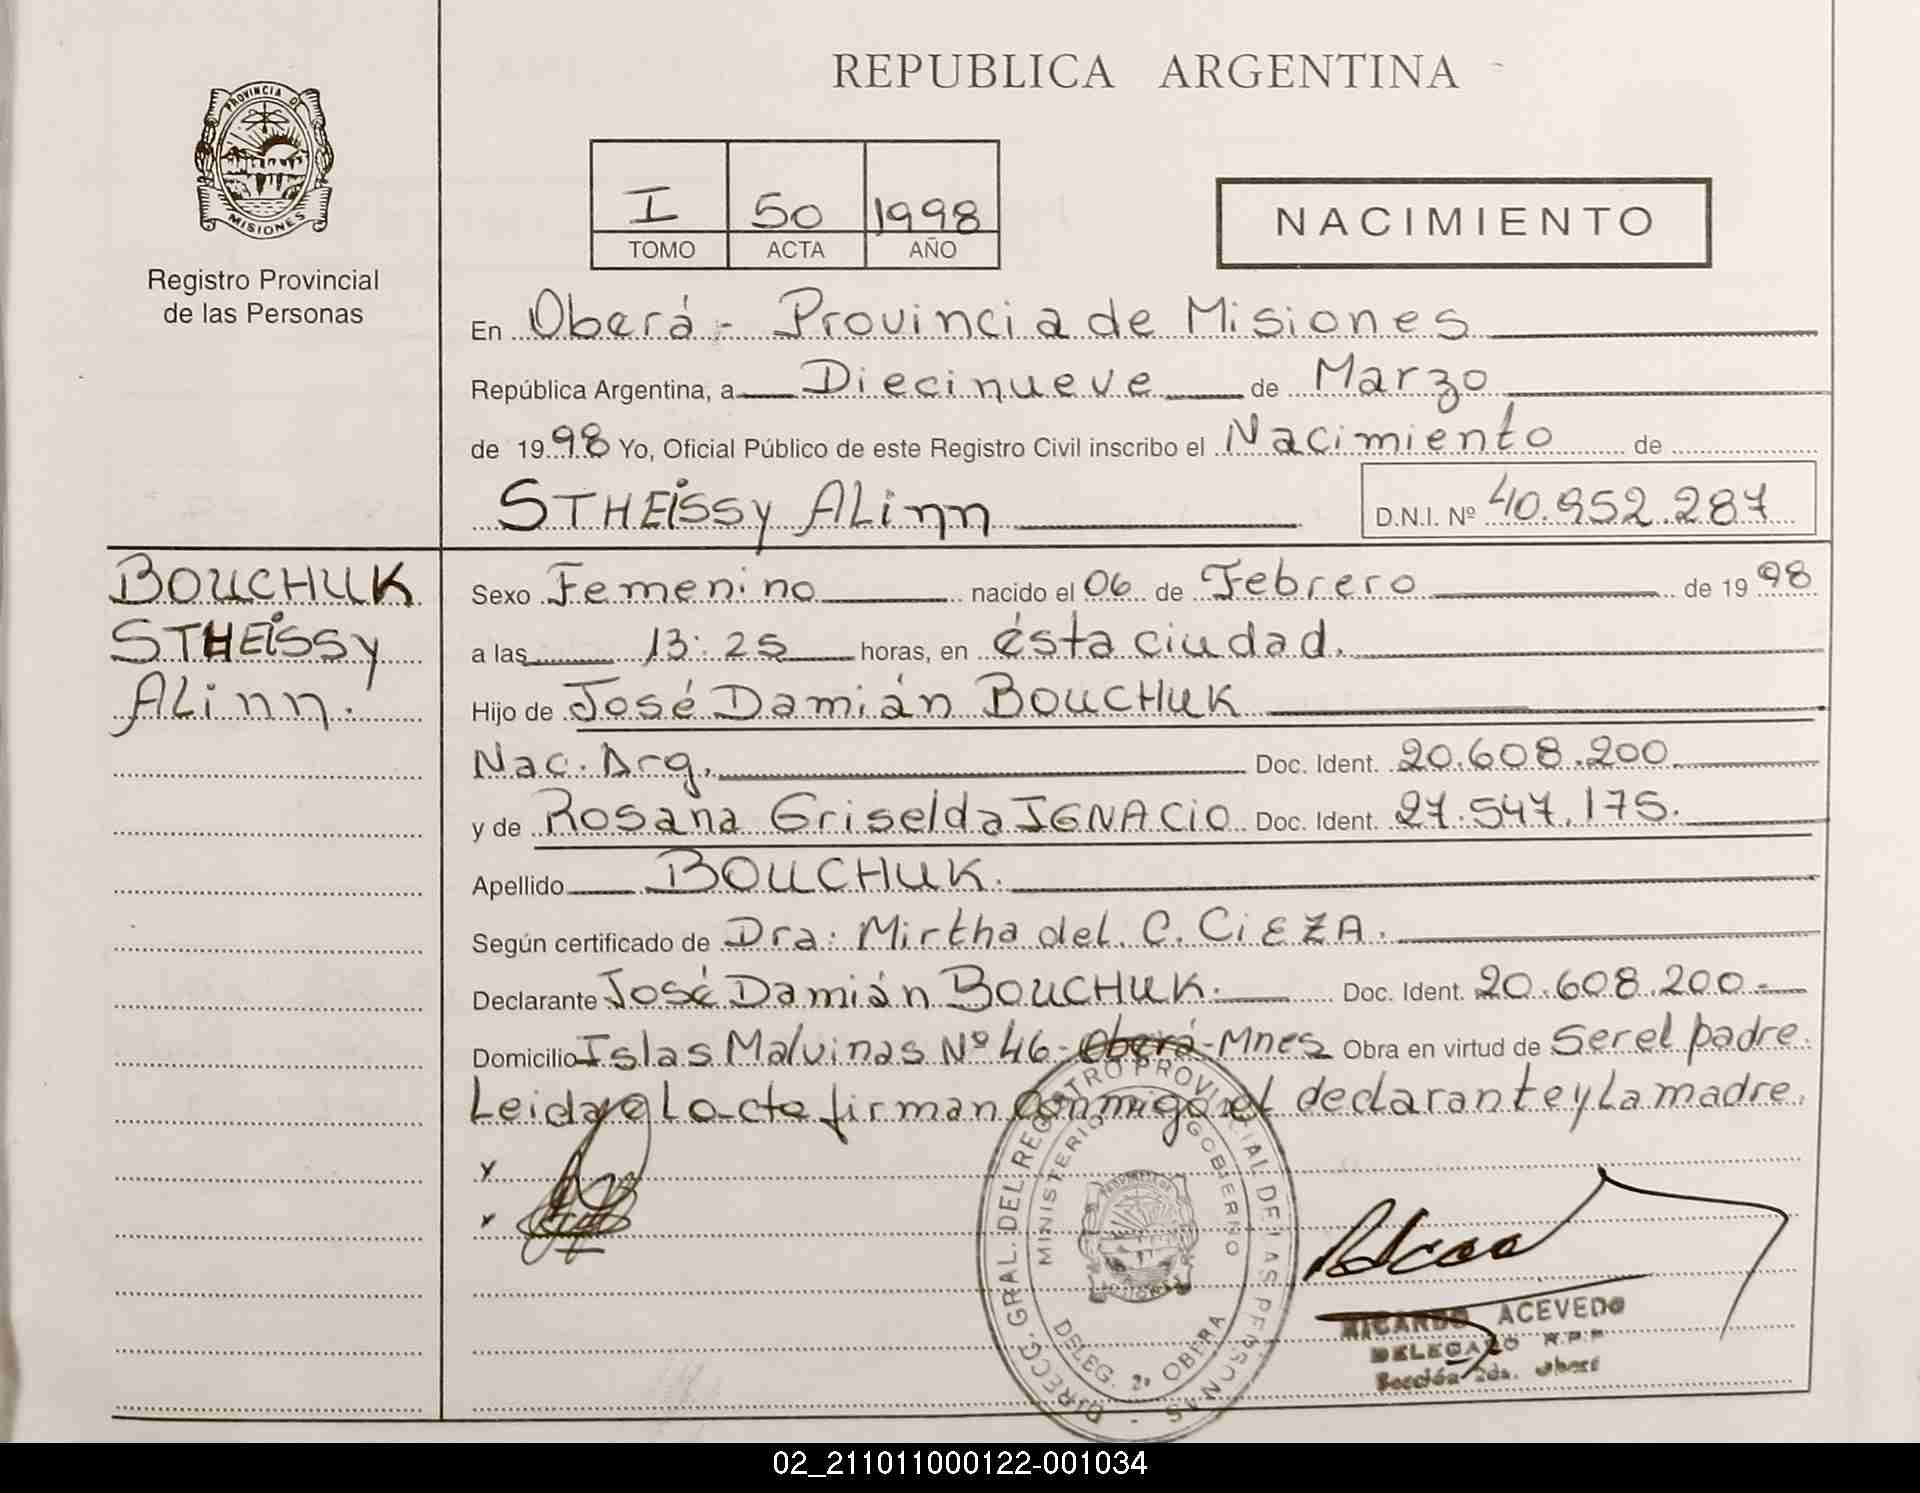 REPUBLICA ARGENTINA
PROVINCIA DE
MISIONES
Registro Provincial
de las Personas
I 50 1998
TOMO ACTA AÑO
NACIMIENTO
En Oberá - Provincia de Misiones
República Argentina, a Diecinueve de Marzo
de 1998 Yo, Oficial Público de este Registro Civil inscribo el Nacimiento de
STHEiSSy ALinn D.N.I. Nº 40.952.287
BOUCHUK
STHEiSSy
ALinn.
Sexo Femenino nacido el 06 de Febrero de 1998
a las 13:25 horas, en ésta ciudad.
Hijo de José Damián BOUCHUK
Nac. Arg. Doc. Ident. 20.608.200
y de Rosana Griselda IGNACiO Doc. Ident. 27.547.175.
Apellido BOUCHUK.
Según certificado de Dra. Mirtha del C. CiEZA.
Declarante José Damián BOUCHUK. Doc. Ident. 20.608.200.-
Domicilio Islas Malvinas Nº 46-Oberá-Mnes Obra en virtud de Ser el padre.
Leida el Acta firman conmigo el declarante y La madre.
x
x
DIRECC. GRAL. DEL REGISTRO PROVINCIAL DE LAS PERSONAS -
MINISTERIO GOBIERNO
DELEG. 2ª OBERA
RICARDO ACEVEDO
DELEGADO R.P.P
Sección 2da. Oberá
02_211011000122-001034